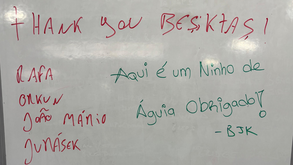 THANK YOU BEŞİKTAŞ!
RAFA
ORKUN
JOÃO MÁRIO
JURÁSEK
Aqui é um Ninho de
Águia Obrigado!
- BJK